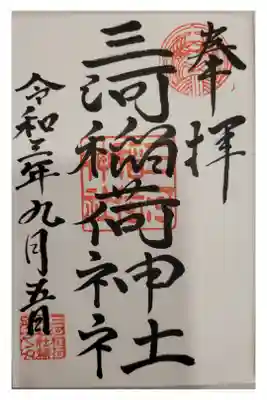 奉拝
三河稲荷神社
令和三年九月五日